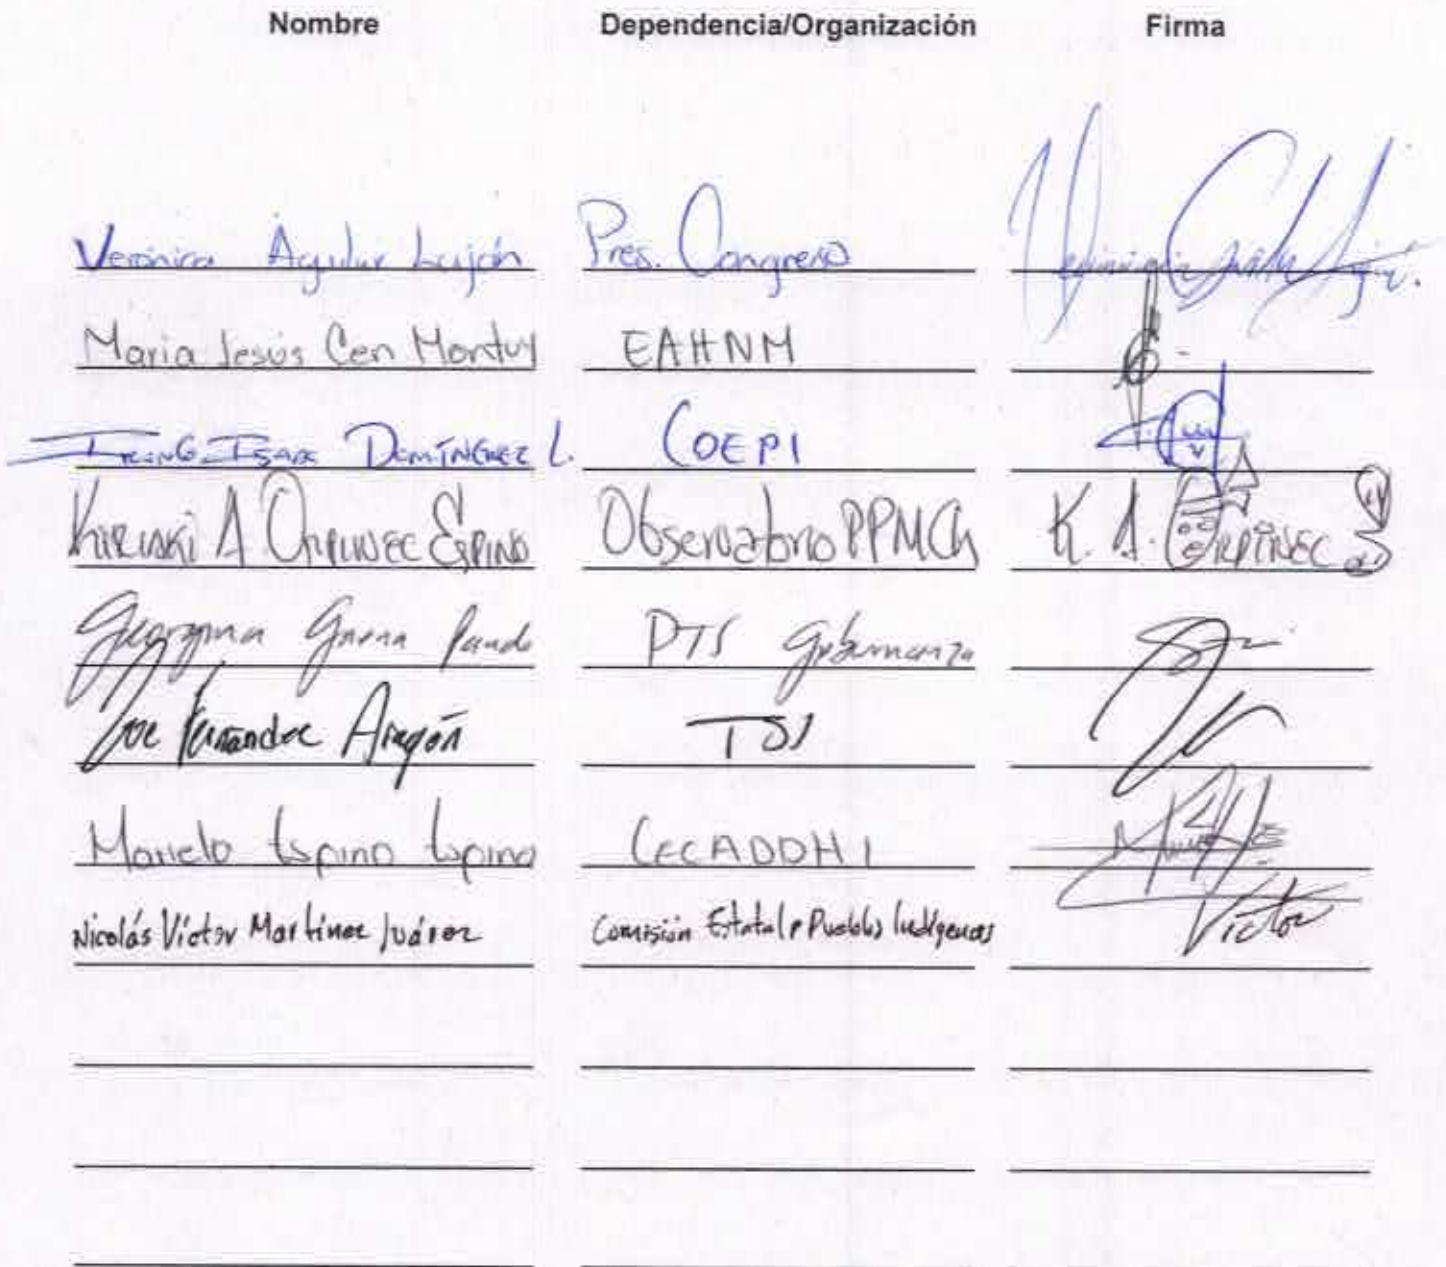 Nombre Dependencia/Organización Firma
Verónica Aguilar Luján Pres. Congreso
Maria Jesús Cen Montuy EAHNM
Irving Isaac Domínguez L. COEPI
Kiriaki A. Orpinel Espino Observatorio PPMCh K. A. Orpinel
Georgina Gaona Pando PTS Gobernanza
Joe Fernández Aragón TSJ
Marielo Espino Espino CECADDHI
Nicolás Víctor Martínez Juárez Comisión Estatal p Pueblos Indígenas Víctor